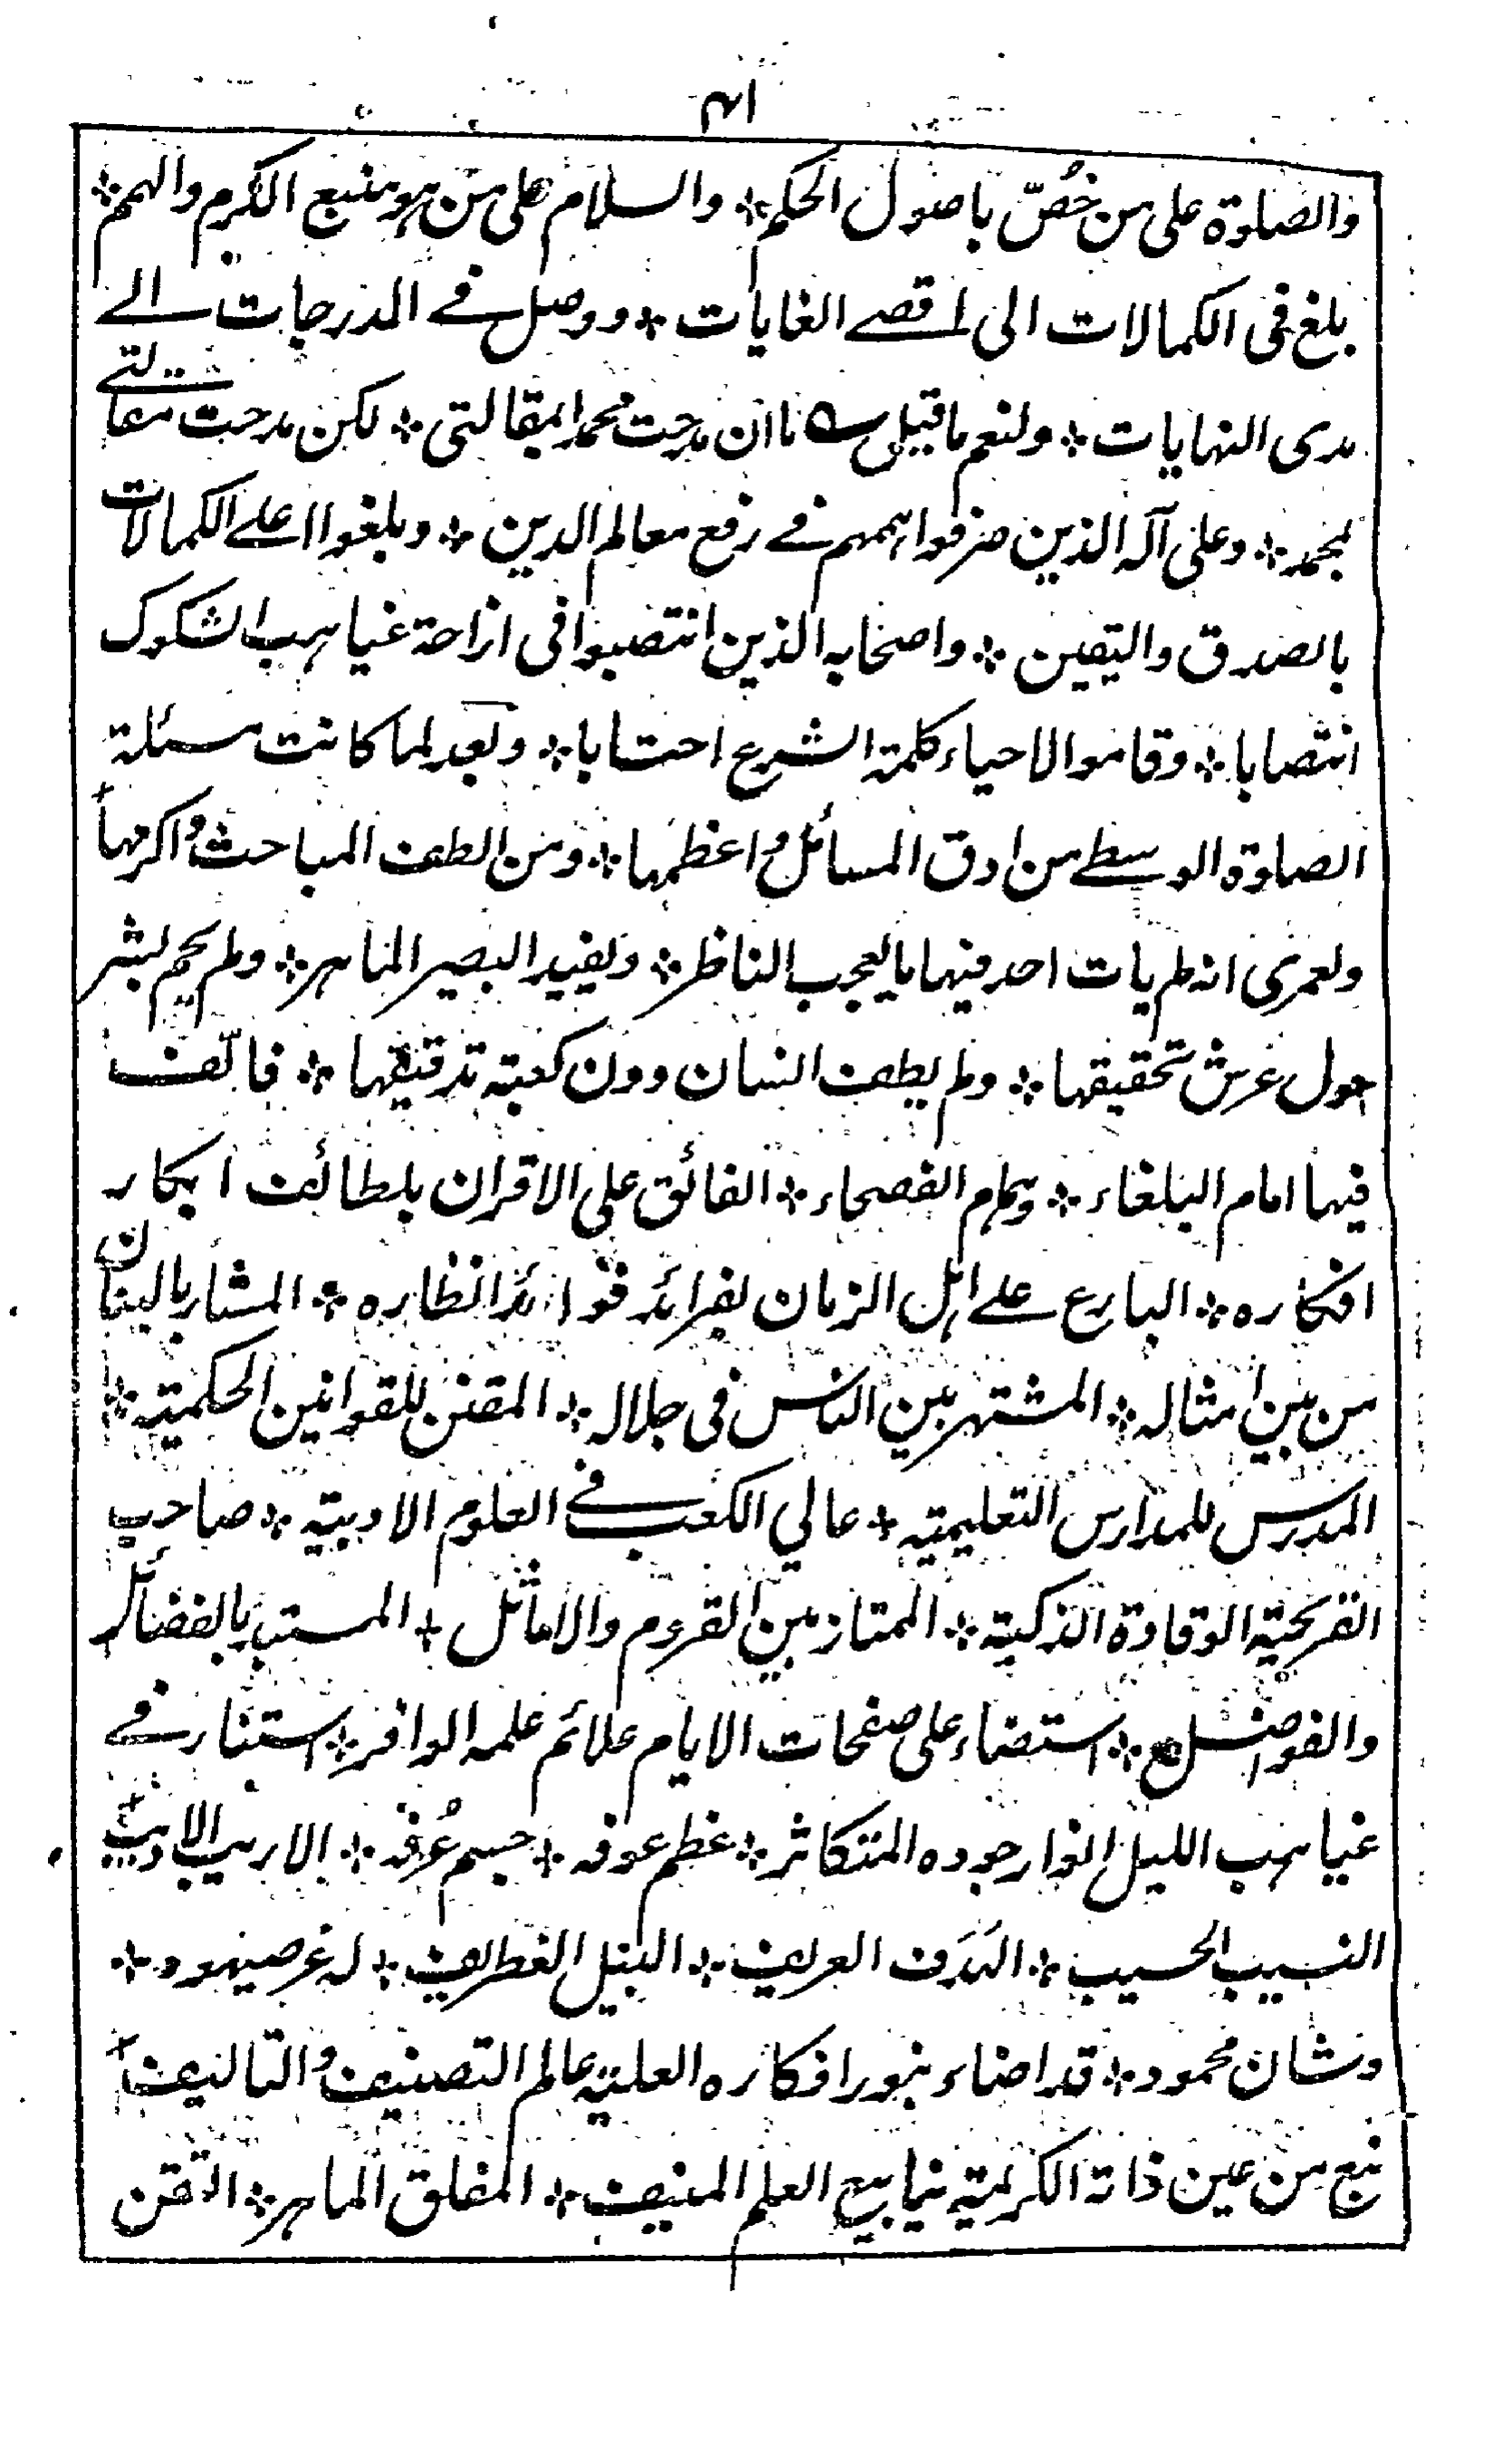 ٤١
والصلوة علی من خُصّ باصول الحکم ؞ والسلام علی من هو منبع الکرم والهمم ؞
بلغ فی الکمالات الی اقصے الغایات ؞ ووصل فے الدرجات الے
مدی النهایات ؞ ولنعم ما قیل ؎ ما ان مدحت محمدا بمقالتی ؞ لکن مدحت مقالتے
بمحمد ؞ وعلی آله الذین صرفوا هممهم فے رفع معالم الدین ؞ وبلغوا اعلے الکمالات
بالصدق والیقین ؞ واصحابه الذین انتصبوا فی ازاحة غیاهب الشکوک
انتصابا ؞ وقاموا لاحیاء کلمة الشرع احتسابا ؞ وبعد لما کانت مسئلة
الصلوة الوسطے من ادق المسائل واعظمها ؞ ومن الطف المباحث واکرمها ؞
ولعمری انه لم یات احد فیها ما یعجب الناظر ؞ ویفید البصیر الماهر ؞ ولم یحم بشر
حول عرش تحقیقها ؞ ولم یطف انسان دون کعبة تدقیقها ؞ فالّف
فیها امام البلغاء ؞ وهمام الفصحاء ؞ الفائق علی الاقران بلطائف ابکار
افکاره ؞ البارع علے اهل الزمان بفرائد فوائد انظاره ؞ المشار بالبنان
من بین امثاله ؞ المشتهر بین الناس فی جلاله ؞ المقنن للقوانین الحکمیة ؞
المدرس للمدارس التعلیمیة ؞ عالی الکعب فے العلوم الادبیة ؞ صاحب
القریحة الوقادة الذکیة ؞ الممتاز بین القروم والاماثل ؞ المستبد بالفضائل
والفواضل ؞ استضاء علی صفحات الایام علائم علمه الوافر ؞ استنار فے
غیاهب اللیل انوار جوده المتکاثر ؞ عظم عوفه ؞ جسم عُرفه ؞ الاریب الادیب ؞
النسیب الحسیب ؞ العریف ؞ النبیل الغطریف ؞ له
وشان محمود ؞ قد اضاء بنور افکاره العلیة عالم التصنیف والتالیف ؞
نبع من عین ذاته الکریمة ینابیع العلم المنیف ؞ المفلق الماهر ؞ التقن